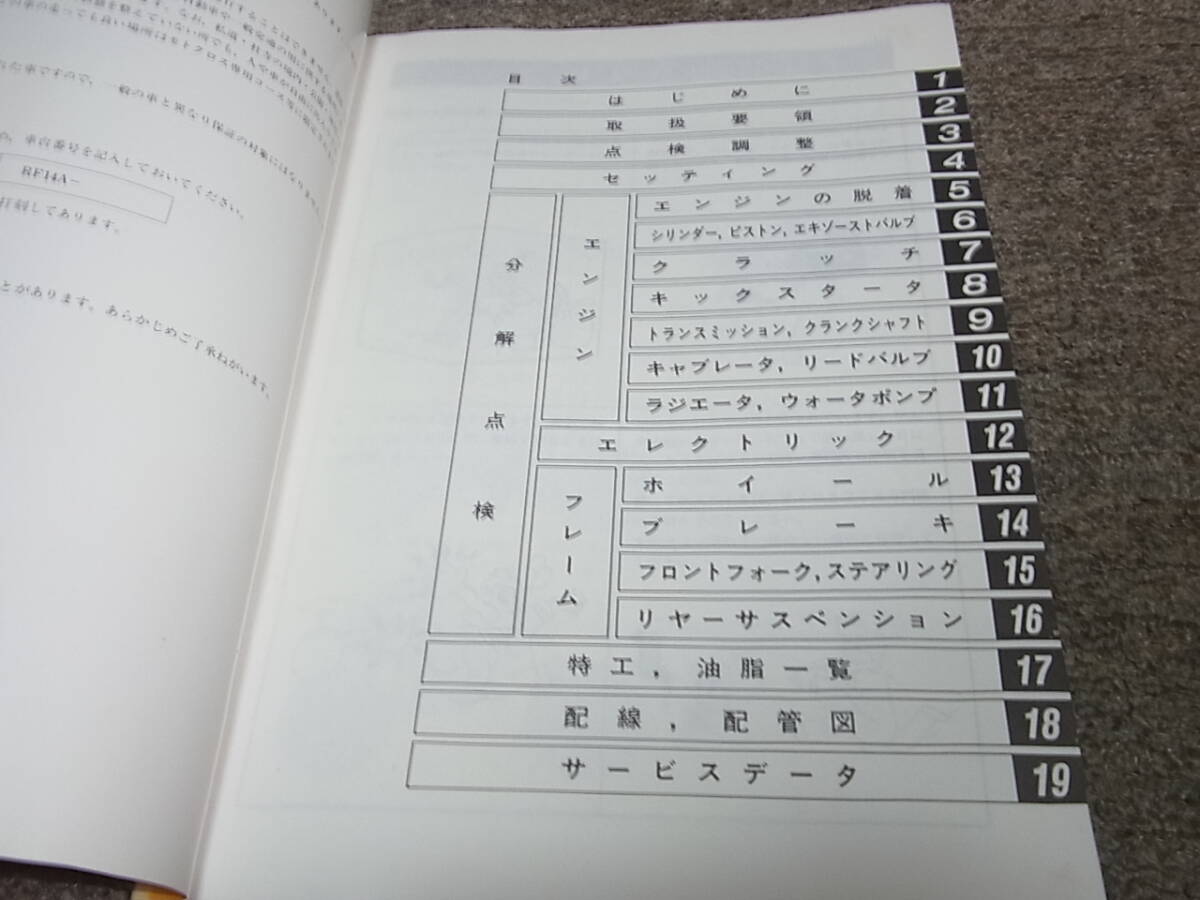 ですので、一般の車と異なり保証の対象にはなりません。
車台番号を記入しておいてください。
RF14A-
打刻してあります。
とがあります。あらかじめご了承ねがいます。
目次
はじめに 1
取扱要領 2
点検調整 3
セッティング 4
分解点検
エンジン
エンジンの脱着 5
シリンダー, ピストン, エキゾーストバルブ 6
クラッチ 7
キックスタータ 8
トランスミッション, クランクシャフト 9
キャブレータ, リードバルブ 10
ラジエータ, ウォータポンプ 11
エレクトリック 12
フレーム
ホイール 13
ブレーキ 14
フロントフォーク, ステアリング 15
リヤーサスペンション 16
特工, 油脂一覧 17
配線, 配管図 18
サービスデータ 19